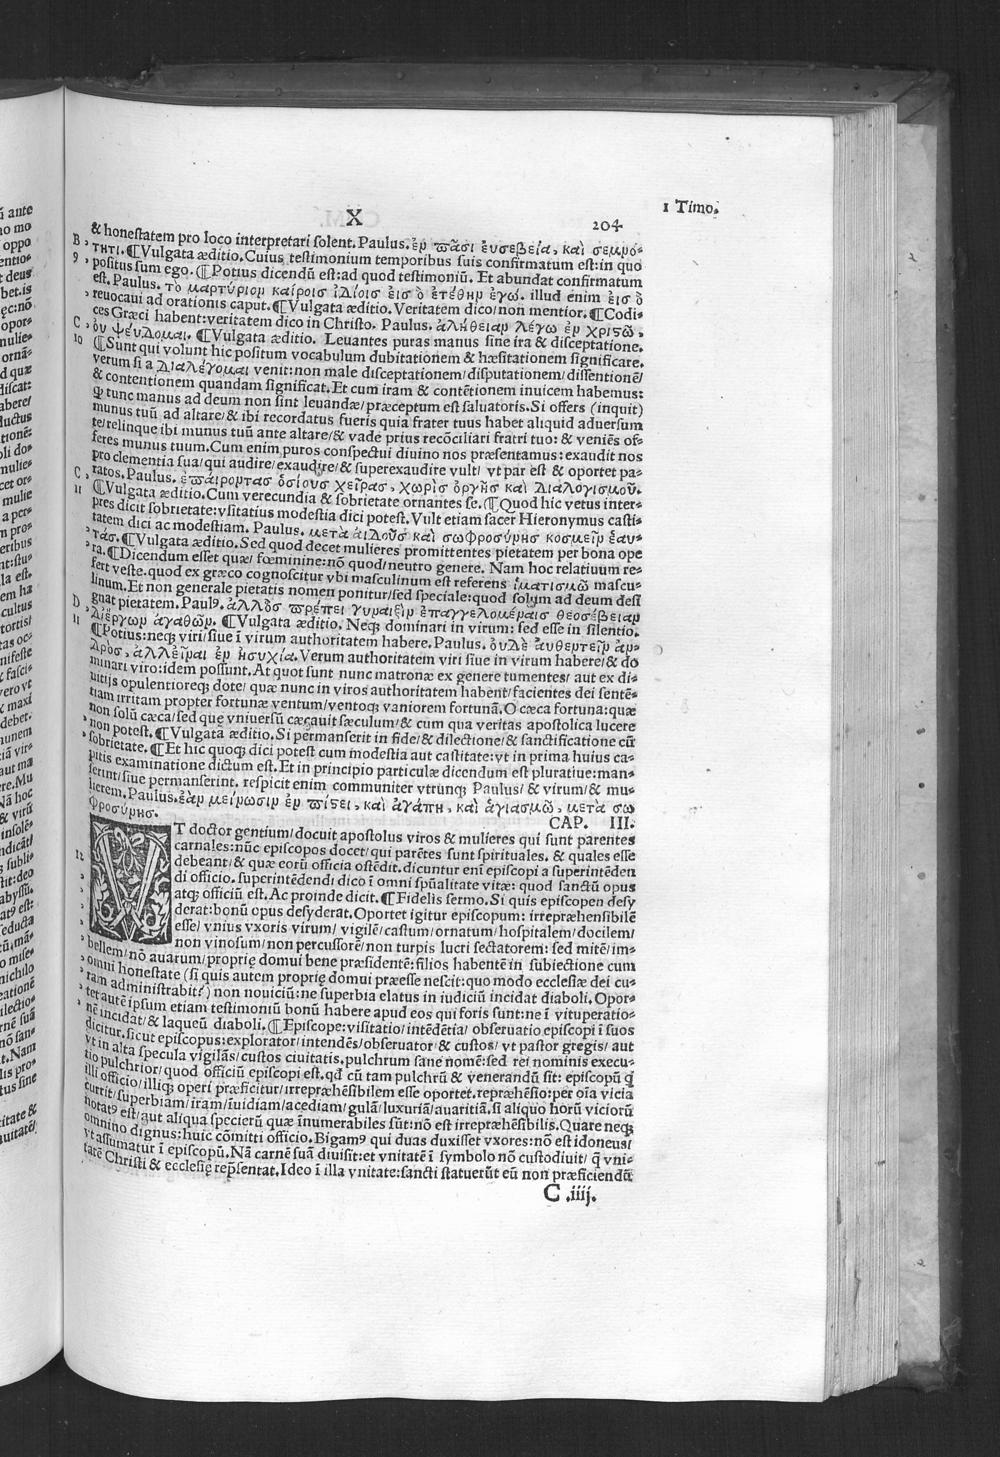 X
204
1 Timo.
& honestatem pro loco interpretari solent. Paulus. ἐν πᾶσι ἐυσεβεία, καὶ σεμνό-
B , τητι. ¶ Vulgata æditio. Cuius testimonium temporibus suis confirmatum est: in quo
9 , positus sum ego. ¶ Potius dicendũ est: ad quod testimoniũ. Et abundat confirmatum
est. Paulus. το μαρτύριον καίροισ ἰδίοισ ἐισ ὁ ἐτέθην ἐγώ. illud enim ἐισ ὁ
, reuocaui ad orationis caput. ¶ Vulgata æditio. Veritatem dico/ non mentior. ¶ Codi-
ces Græci habent: veritatem dico in Christo. Paulus. ἀλήθειαν λέγω ἐν χριστῶ,
C , ὀυ ψέυδομαι. ¶ Vulgata æditio. Leuantes puras manus sine ira & disceptatione.
10 ¶ Sunt qui volunt hic positum vocabulum dubitationem & hæsitationem significare.
verum si a διαλέγομαι venit: non male disceptationem/ disputationem/ dissentionẽ/
& contentionem quandam significat. Et cum iram & contẽtionem inuicem habemus:
ꝙ tunc manus ad deum non sint leuandæ/ præceptum est saluatoris. Si offers (inquit)
munus tuũ ad altare/ & ibi recordatus fueris quia frater tuus habet aliquid aduersum
te/ relinque ibi munus tuũ ante altare/ & vade prius recõciliari fratri tuo: & veniẽs of-
feres munus tuum. Cum enim puros conspectui diuino nos præsentamus: exaudit nos
pro clementia sua/ qui audire/ exaudire/ & superexaudire vult/ vt par est & oportet pa-
C , ratos. Paulus. ἐπάιροντασ ὁσίουσ χεῖρασ, χωρὶσ ὀργῆσ καὶ διαλογισμοῦ.
11 ¶ Vulgata æditio. Cum verecundia & sobrietate ornantes se. ¶ Quod hic vetus inter-
pres dicit sobrietate: vsitatius modestia dici potest. Vult etiam sacer Hieronymus casti-
tatem dici ac modestiam. Paulus. μετὰ ἀιδοῦσ καὶ σωφροσύνησ κοσμεῖν ἑαυ-
, τάσ. ¶ Vulgata æditio. Sed quod decet mulieres promittentes pietatem per bona ope
, ra. ¶ Dicendum esset quæ/ fœminine: nõ quod/ neutro genere. Nam hoc relatiuum re-
fert veste. quod ex græco cognoscitur vbi masculinum est referens ἱματισμῶ mascu-
linum. Et non generale pietatis nomen ponitur/ sed speciale: quod solum ad deum desi
gnat pietatem. Paulꝰ. ἀλλὸσ πρέπει γυναιξὶν ἐπαγγελομέναισ θεοσέβειαν
D , διέργων ἀγαθῶν. ¶ Vulgata æditio. Neqꝫ dominari in virum: sed esse in silentio.
11 ¶ Potius: neqꝫ viri/ siue ĩ virum authoritatem habere. Paulus. ὀυδὲ ἀυθεντεῖν ἀν-
δρὸσ, ἀλλἐῖναι ἐν ἡσυχία. Verum authoritatem viri siue in virum habere/ & do
minari viro: idem possunt. At quot sunt nunc matronæ ex genere tumentes/ aut ex di-
uitijs opulentioreqꝫ dote/ quæ nunc in viros authoritatem habent/ facientes dei sentẽ-
tiam irritam propter fortunæ ventum/ ventoqꝫ vaniorem fortunã. O cæca fortuna: quæ
non solũ cæca/ sed que vniuersũ cæcauit sæculum/ & cum qua veritas apostolica lucere
, non potest. ¶ Vulgata æditio. Si permanserit in fide/ & dilectione/ & sanctificatione cũ
, sobrietate. ¶ Et hic quoqꝫ dici potest cum modestia aut castitate: vt in prima huius ca-
pitis examinatione dictum est. Et in principio particulæ dicendum est pluratiue: man-
serint/ siue permanserint. respicit enim communiter vtrunqꝫ Paulus/ & virum/ & mu-
lierem. Paulus. ἐὰν μείνωσιν ἐν πίστει, καὶ ἀγάπη, καὶ ἁγιασμῶ, μετὰ σω
φροσύνησ.
CAP. III.
VT doctor gentium/ docuit apostolus viros & mulieres qui sunt parentes
carnales: nũc episcopos docet/ qui parẽtes sunt spirituales. & quales esse
12 debeant/ & quæ eorũ officia ostẽdit. dicuntur eni episcopi a superintẽden
di officio. superintẽdendi dico ĩ omni spũalitate vitæ: quod sanctũ opus
, atqꝫ officiũ est. Ac proinde dicit. ¶ Fidelis sermo. Si quis episcopen desy
, derat: bonũ opus desyderat. Oportet igitur episcopum: irrepræhensibilẽ
, esse/ vnius vxoris virum/ vigilẽ/ castum/ ornatum/ hospitalem/ docilem/
, non vinosum/ non percussorẽ/ non turpis lucri sectatorem: sed mitẽ/ im-
, bellem/ nõ auarum/ proprię domui bene præsidentẽ: filios habentẽ in subiectione cum
, omni honestate (si quis autem proprię domui præesse nescit: quo modo ecclesiæ dei cu-
, ram administrabit?) non nouiciũ: ne superbia elatus in iudiciũ incidat diaboli. Opor-
, tet autẽ ipsum etiam testimoniũ bonũ habere apud eos qui foris sunt: ne ĩ vituperatio-
, nẽ incidat/ & laqueũ diaboli. ¶ Episcope: visitatio/ intẽdẽtia/ obseruatio episcopi ĩ suos
dicitur. sicut episcopus: explorator/ intendẽs/ obseruator/ & custos/ vt pastor gregis/ aut
vt in alta specula vigilãs/ custos ciuitatis. pulchrum sane nomẽ: sed rei nominis execu-
tio pulchrior/ quod officiũ episcopi est. qd cũ tam pulchrũ & venerandũ sit: episcopũ q̃
illi officio/ illiqꝫ operi præficitur/ irrepræhẽsibilem esse oportet. repræhẽsio: per oĩa vicia
currit/ superbiam/ iram/ ĩuidiam/ acediam/ gulã/ luxuriã/ auaritiã. si aliquo horũ viciorũ
notatꝰ est/ aut aliqua specierũ quæ ĩnumerabiles sũt: nõ est irrepræhẽsibilis. Quare neqꝫ
omnino dignus: huic cõmitti officio. Bigamꝰ qui duas duxisset vxores: nõ est idoneus/
vt assumatur ĩ episcopũ. Nã carnẽ suã diuisit: et vnitatẽ ĩ symbolo nõ custodiuit/ q̃ vni-
tatẽ Christi & ecclesię repsentat. Ideo ĩ illa vnitate: sancti statuerũt eũ non præficiendũ
C .iiij.